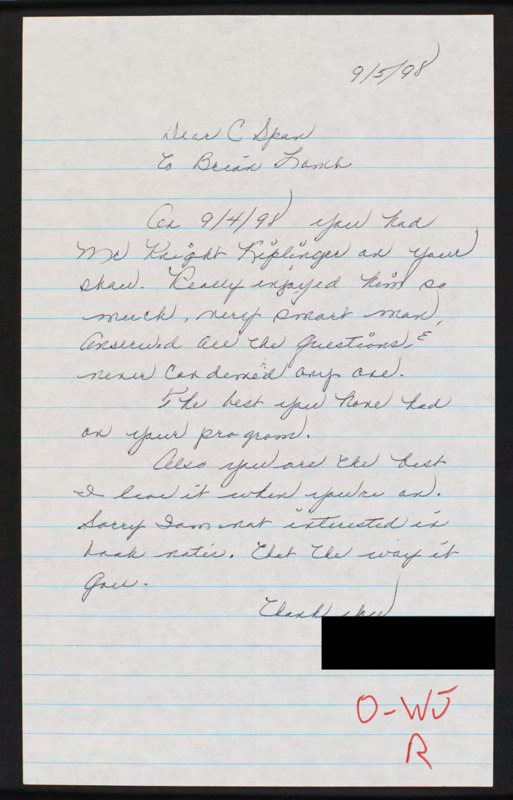 9/5/98
Dear C Span
To Brian Lamb
On 9/4/98 you had
Mr Knight Kiplinger on your
show. Really enjoyed him so
much, very smart man,
Answered all the questions, &
never condemed any one.
The best you have had
on your program.
Also you are the best
I love it when you're on.
Sorry I am not interested in
book notes. That the way it
goes.
Thank you
O-WJ
R